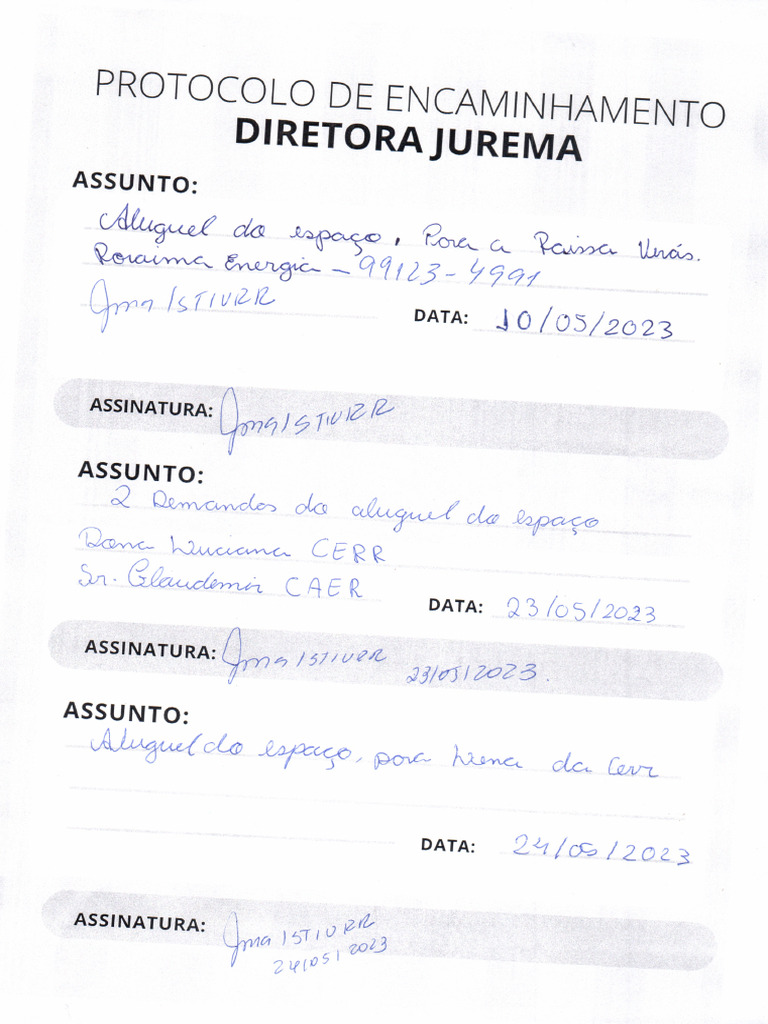 PROTOCOLO DE ENCAMINHAMENTO
DIRETORA JUREMA
ASSUNTO:
Aluguel do espaço, Para a Raissa Verás.
Roraima Energia - 99123-4991
DATA: 10/05/2023
ASSINATURA:
ASSUNTO:
2 Demandas do aluguel do espaço
Dona Luciana CERR
Sr. Claudemir CAER
DATA: 23/05/2023
ASSINATURA: 23/05/2023.
ASSUNTO:
Aluguel do espaço, para Lena da Cerr
DATA: 24/05/2023
ASSINATURA:
24/05/2023